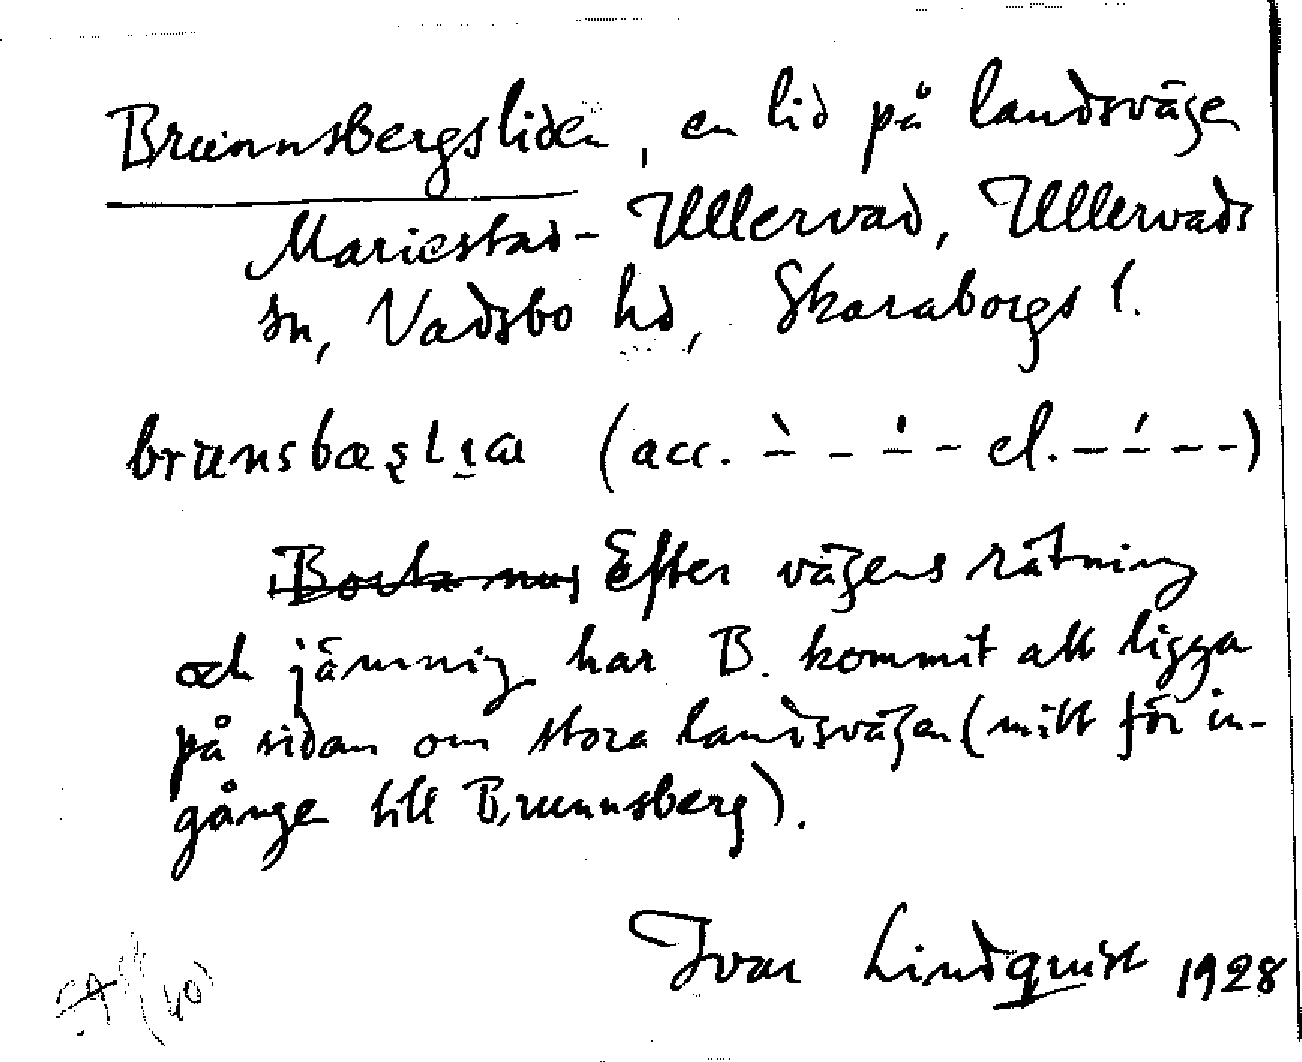 Brunnsbergsliden, en lid på landsvägen
Mariestad - Ullervad, Ullervads
sn, Vadsbo hd, Skaraborgs l.
(acc. ` - - ' - - el. - ' - - -)
Efter vägens rätning
och jämning har B. kommit att ligga
på sidan om stora landsvägen (mitt för in-
gången till Brunnsberg).
Ivar Lindquist 1928